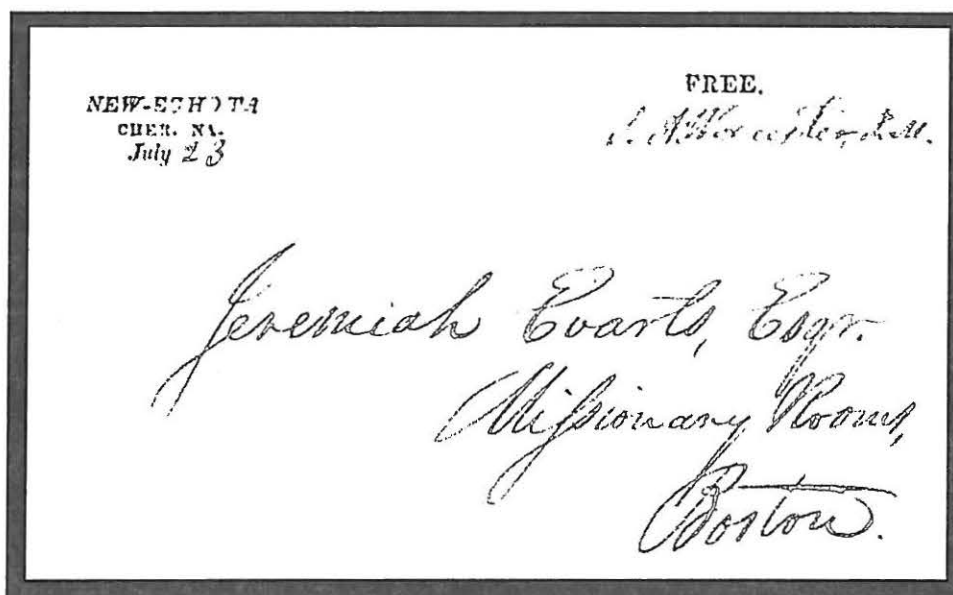 NEW-ECHOTA
CHER. NA.
July 23
FREE.
S. A. Worcester, P. M.
Jeremiah Evarts, Esqr.
Missionary Rooms,
Boston.